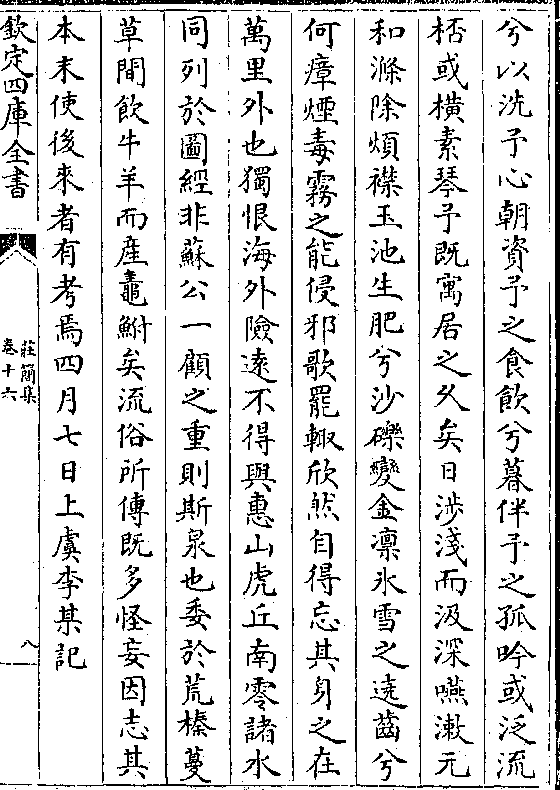 兮以洗予心朝資予之食飲兮暮伴予之孤吟或泛流
桮或橫素琴予既寓居之乆矣日涉淺而汲深嚥漱元
和滌除煩襟玉池生肥兮沙礫變金凛氷雪之遶齒兮
何瘴煙毒霧之能侵邪歌罷輙欣然自得忘其身之在
萬里外也獨恨海外險逺不得與惠山虎丘南零諸水
同列於圖經非蘇公一顧之重則斯泉也委於荒榛蔓
草間飲牛羊而産鼃鮒矣流俗所傳既多怪妄因志其
本末使後來者有考焉四月七日上虞李某記
欽定四庫全書
莊簡集
卷十六
八